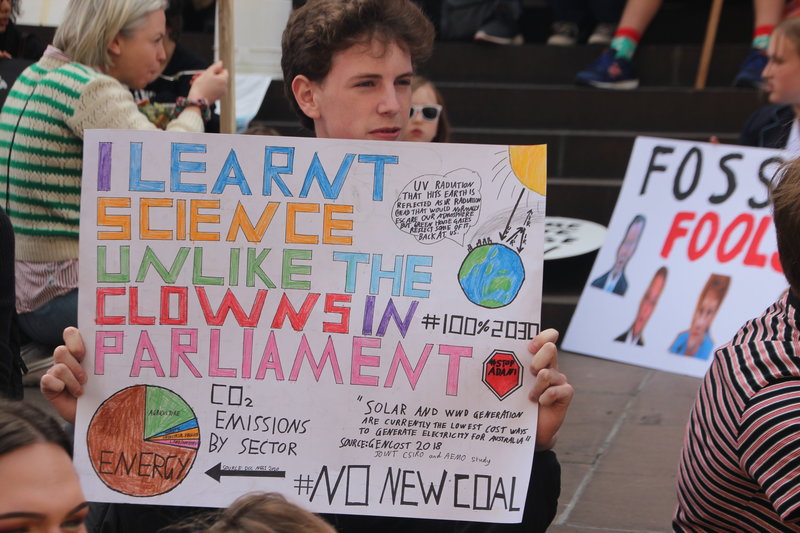 I LEARNT
SCIENCE
UNLIKE THE
CLOWNS IN
PARLIAMENT
UV RADIATION
THAT HITS EARTH IS
REFLECTED AS IR RADIATION
AND THAT WOULD NORMALLY
ESCAPE OUR ATMOSPHERE
BUT GREEN HOUSE GASES
REFLECT SOME OF IT
BACK AT US.
#100%2030
#STOP
ADANI
AGRICULTURE
ENERGY
CO2
EMISSIONS
BY SECTOR
"SOLAR AND WIND GENERATION
ARE CURRENTLY THE LOWEST COST WAYS
TO GENERATE ELECTRICITY FOR AUSTRALIA"
SOURCE: GENCOST 2018
JOINT CSIRO and AEMO study
#NO NEW COAL
FOSS
FOOLS